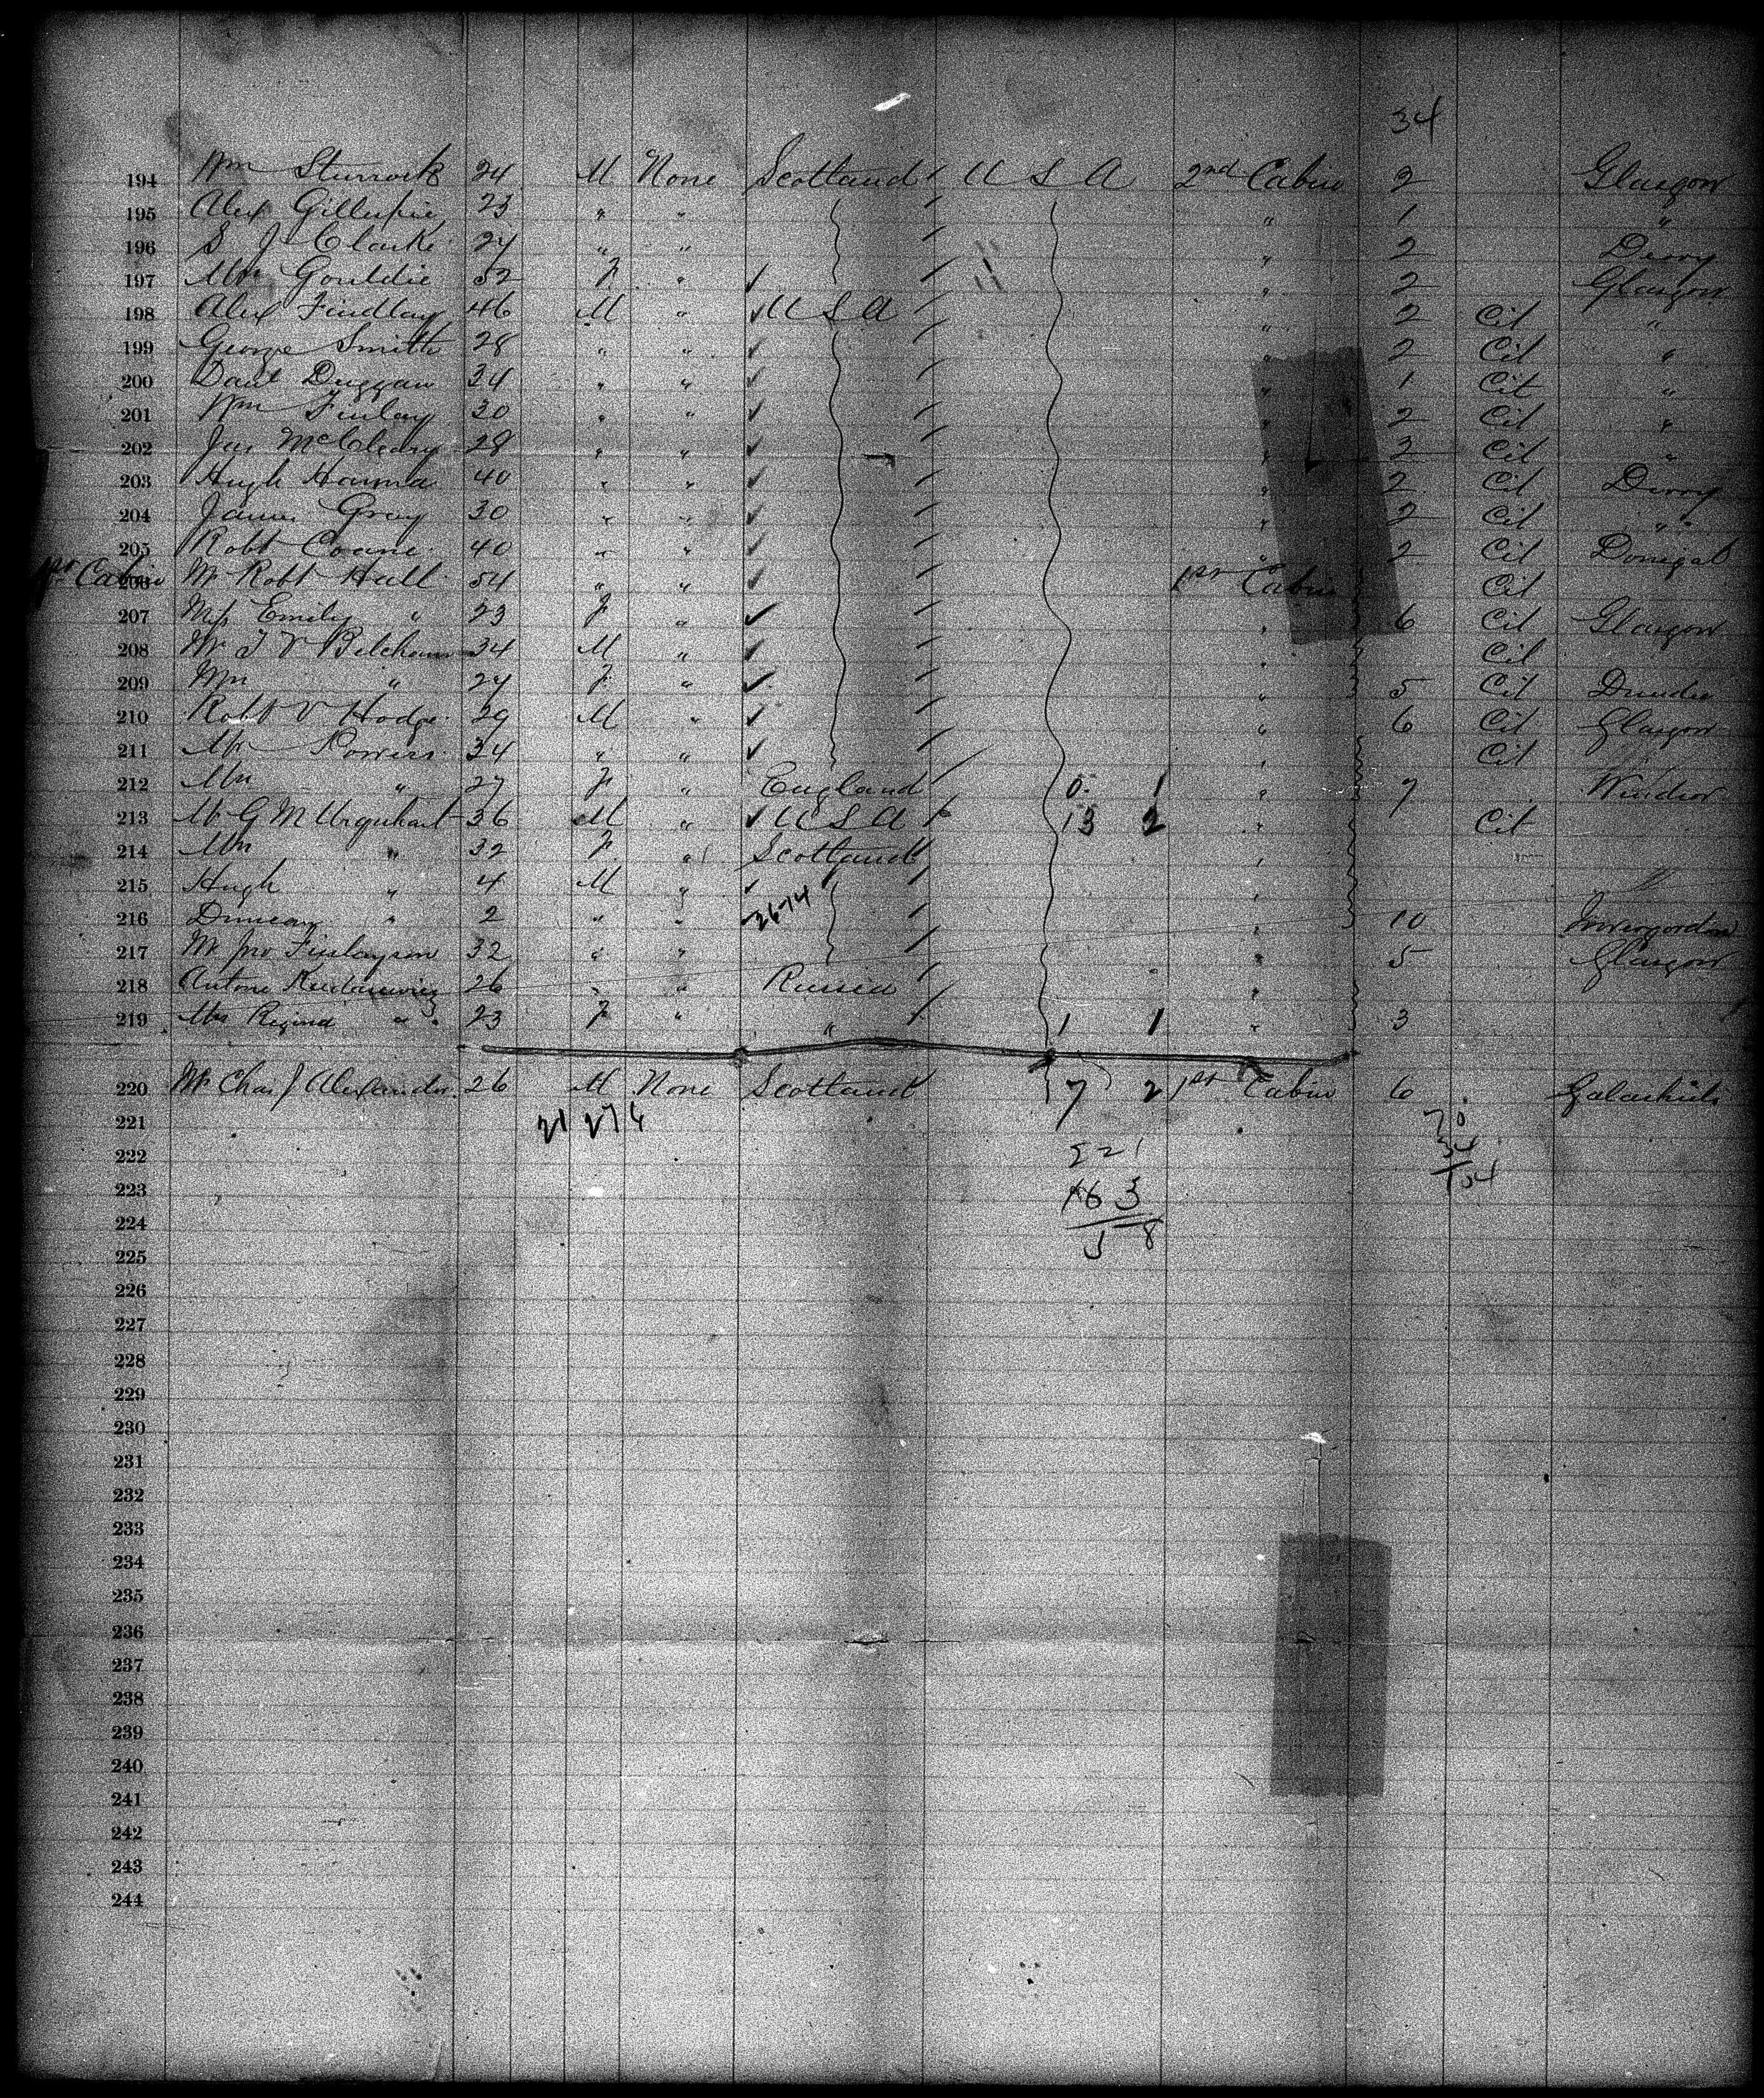 34
194 Wm Sturrock 24 M None Scotland U S A 2nd Cabin 2 Glasgow
195 Alex Gillespie 23 " " " 1 "
196 S J Clarke 24 " " " 2 Derry
197 Mrs Gouldie 52 F " " 2 Glasgow
198 Alex Findlay 46 M " U S A " 2 Cit "
199 George Smith 28 " " " 2 Cit "
200 Danl Duggan 34 " " " 1 Cit "
201 Wm Finlay 30 " " " 2 Cit "
202 Jas McCleary 28 " " " 3 Cit "
203 Hugh 40 " " " 2 Cit Derry
204 James Gray 30 " " " 2 Cit "
205 Robt Coane 40 " " " 2 Cit Donegal
1st Cabin 206 Mr Robt Hall 54 " " 1st Cabin Cit
207 Miss Emily " 23 F " " 6 Cit Glasgow
208 Mr T V Belcham 34 M " " Cit
209 Mrs " 24 F " " 5 Cit Dundee
210 Robt V Hodge 29 M " " 6 Cit Glasgow
211 Mr Powers 34 " " " Cit
212 Mrs " 27 F " England 0 1 " 7 Windsor
213 Mr G M Urquhart 36 M " U S A 13 2 " Cit
214 Mrs " 32 F " Scotland "
215 Hugh " 4 M " "
216 Duncan " 2 " " " 10 Invergordon
217 Mr Jno Finlayson 32 " " " 5 Glasgow
218 Antone 26 " " Russia "
219 Mrs Regina " 23 F " " 1 1 " 3
220 Mr Chas J Alexander 26 M None Scotland 7 2 1st Cabin 6 Galashiels
221
222 221
223
224
225
226
227
228
229
230
231
232
233
234
235
236
237
238
239
240
241
242
243
244